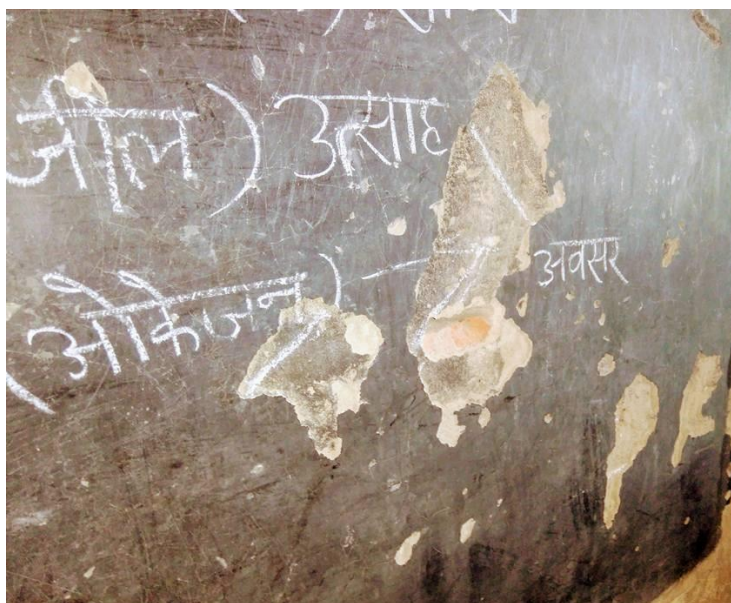 जील) उत्साह
(ओकेजन) - अवसर